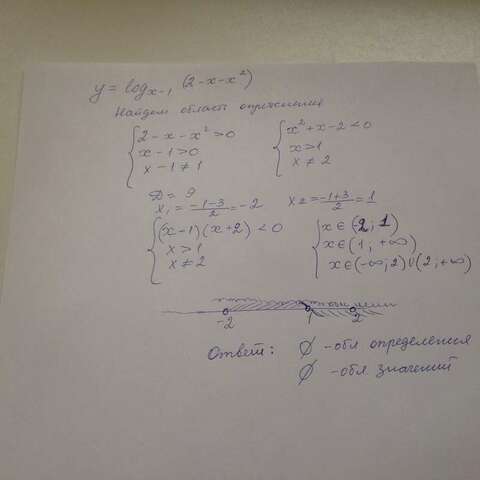 y = log x-1 (2-x-x²)
Найдем область определения
{ 2-x-x² > 0
x-1 > 0
x-1 ≠ 1
{ x²+x-2 < 0
x > 1
x ≠ 2
D = 9
x₁ = (-1-3)/2 = -2 x₂ = (-1+3)/2 = 1
{ (x-1)(x+2) < 0
x > 1
x ≠ 2
{ x ∈ (-2; 1)
x ∈ (1; +∞)
x ∈ (-∞; 2) ∪ (2; +∞)
-2 1 2
Ответ: ∅ - обл определения
∅ - обл значений